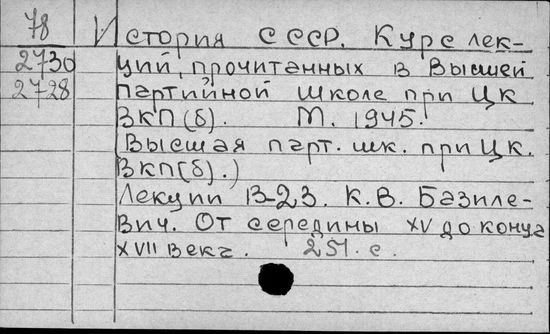 78
История СССР. Курс лек-
2730
ций, прочитанных в Высшей
2728
партийной школе при ЦК
ВКП(б). М. 1945.
(Высшая парт. шк. при ЦК.
ВКП(б).)
Лекции 13-23. К.В. Базиле-
вич. От середины XV до конца
XVII века. 251. с.